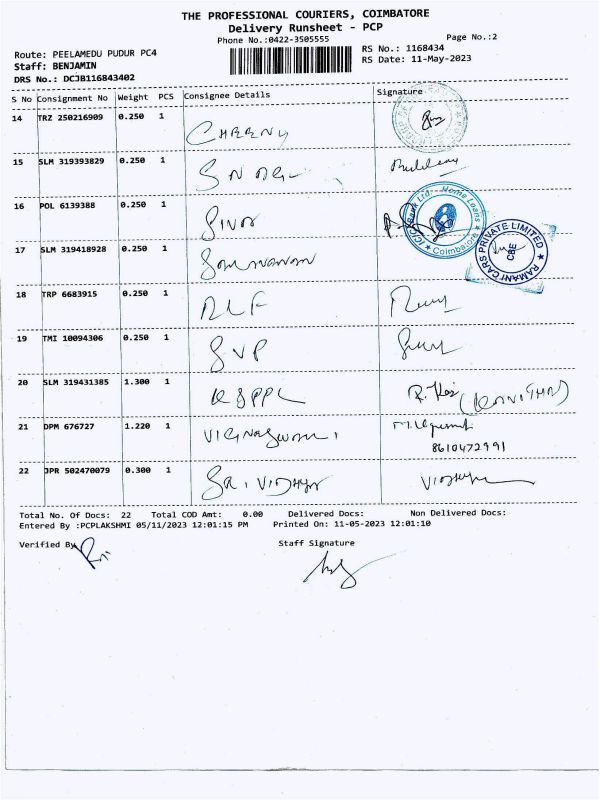 THE PROFESSIONAL COURIERS, COIMBATORE
Delivery Runsheet - PCP
Phone No.:0422-3505555
Page No.:2
Route: PEELAMEDU PUDUR PC4
Staff: BENJAMIN
DRS No.: DCJB116843402
RS No.: 1168434
RS Date: 11-May-2023
S No Consignment No Weight PCS Consignee Details Signature
14 TRZ 250216909 0.250 1
15 SLM 319393829 0.250 1
16 POL 6139388 0.250 1 SIVA
ICICI Bank Ltd. Home Loans
★ Coimbatore ★
17 SLM 319418928 0.250 1
RAMANI CARS PRIVATE LIMITED ★
CBE
18 TRP 6683915 0.250 1 DLF
19 TMI 10094306 0.250 1 SVP
20 SLM 319431385 1.300 1 KSPPL (KAVITHA)
21 DPM 676727 1.220 1
8610472991
22 JPR 502470079 0.300 1 SRI VIDHYA VIDHYA
Total No. Of Docs: 22 Total COD Amt: 0.00 Delivered Docs: Non Delivered Docs:
Entered By :PCPLAKSHMI 05/11/2023 12:01:15 PM Printed On: 11-05-2023 12:01:10
Verified By
Staff Signature